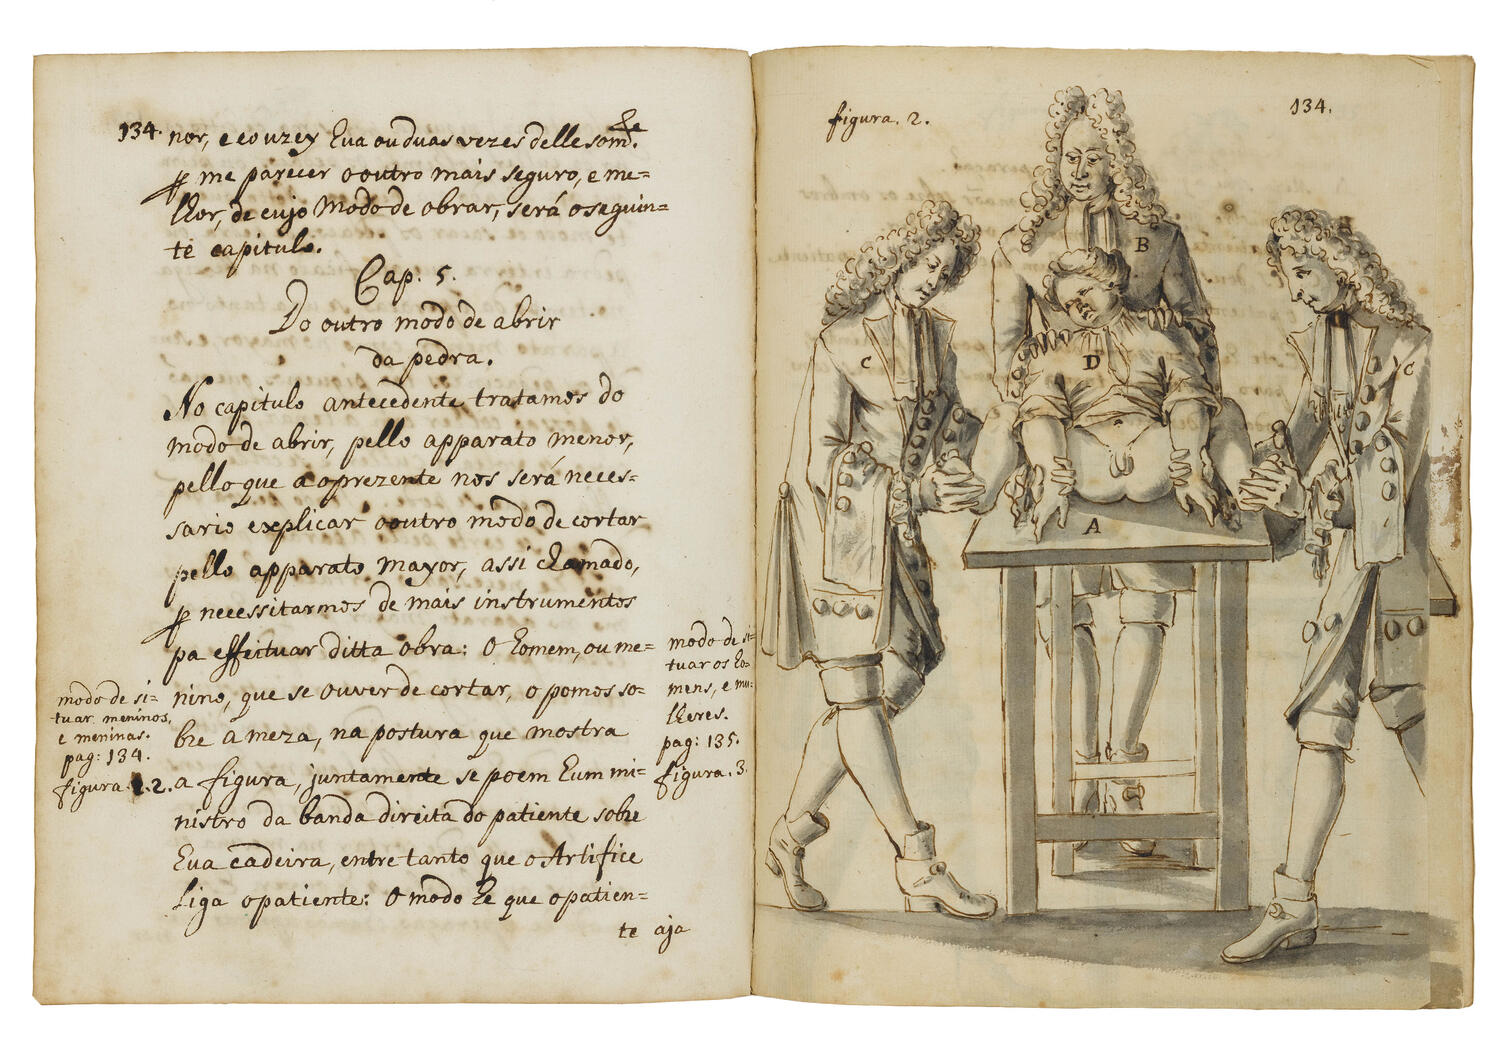 134. nor, e couzey hua ou duas vezes delle som.te
p me parecer o outro mais seguro, e me=
lhor, de cujo modo de obrar, será o seguin=
te capitulo.
Cap: 5.
Do outro modo de abrir
da pedra.
No capitulo antecedente tratamos do
modo de abrir, pello apparato menor,
pello que a oprezente nos será neces=
sario explicar o outro modo de cortar
pello apparato mayor, assi chamado,
p necessitarmos de mais instrumentos
pa effeituar ditta obra: O homem, ou me=
nino, que se ouver de cortar, o pomos so=
bre a meza, na postura que mostra
a figura, juntamente se poem hum mi=
nistro da banda direita do patiente sobre
hua cadeira, entre tanto que o Artifice
liga o patiente: O modo he que o patien=
te aja
modo de si=
tuar meninos,
e meninas.
pag: 134.
figura 2.
modo de si=
tuar os ho=
mens, e mu=
lheres.
pag: 135.
figura. 3.
figura. 2.
134.
B
C
D
C
A